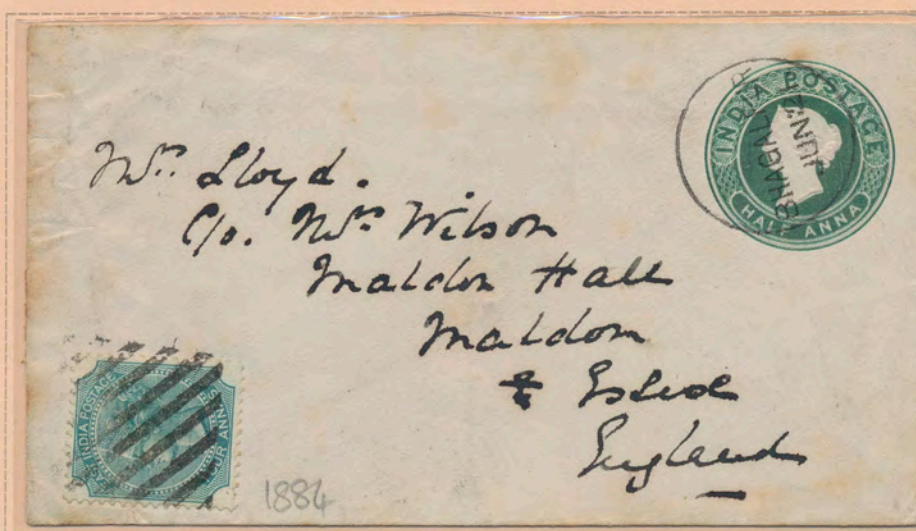 INDIA POSTAGE
HALF ANNA
JUN 2
Mrs Lloyd.
C/o. Mrs Wilson
Maldon Hall
Maldon
Essex
England
EAST INDIA POSTAGE
FOUR ANNAS
1884